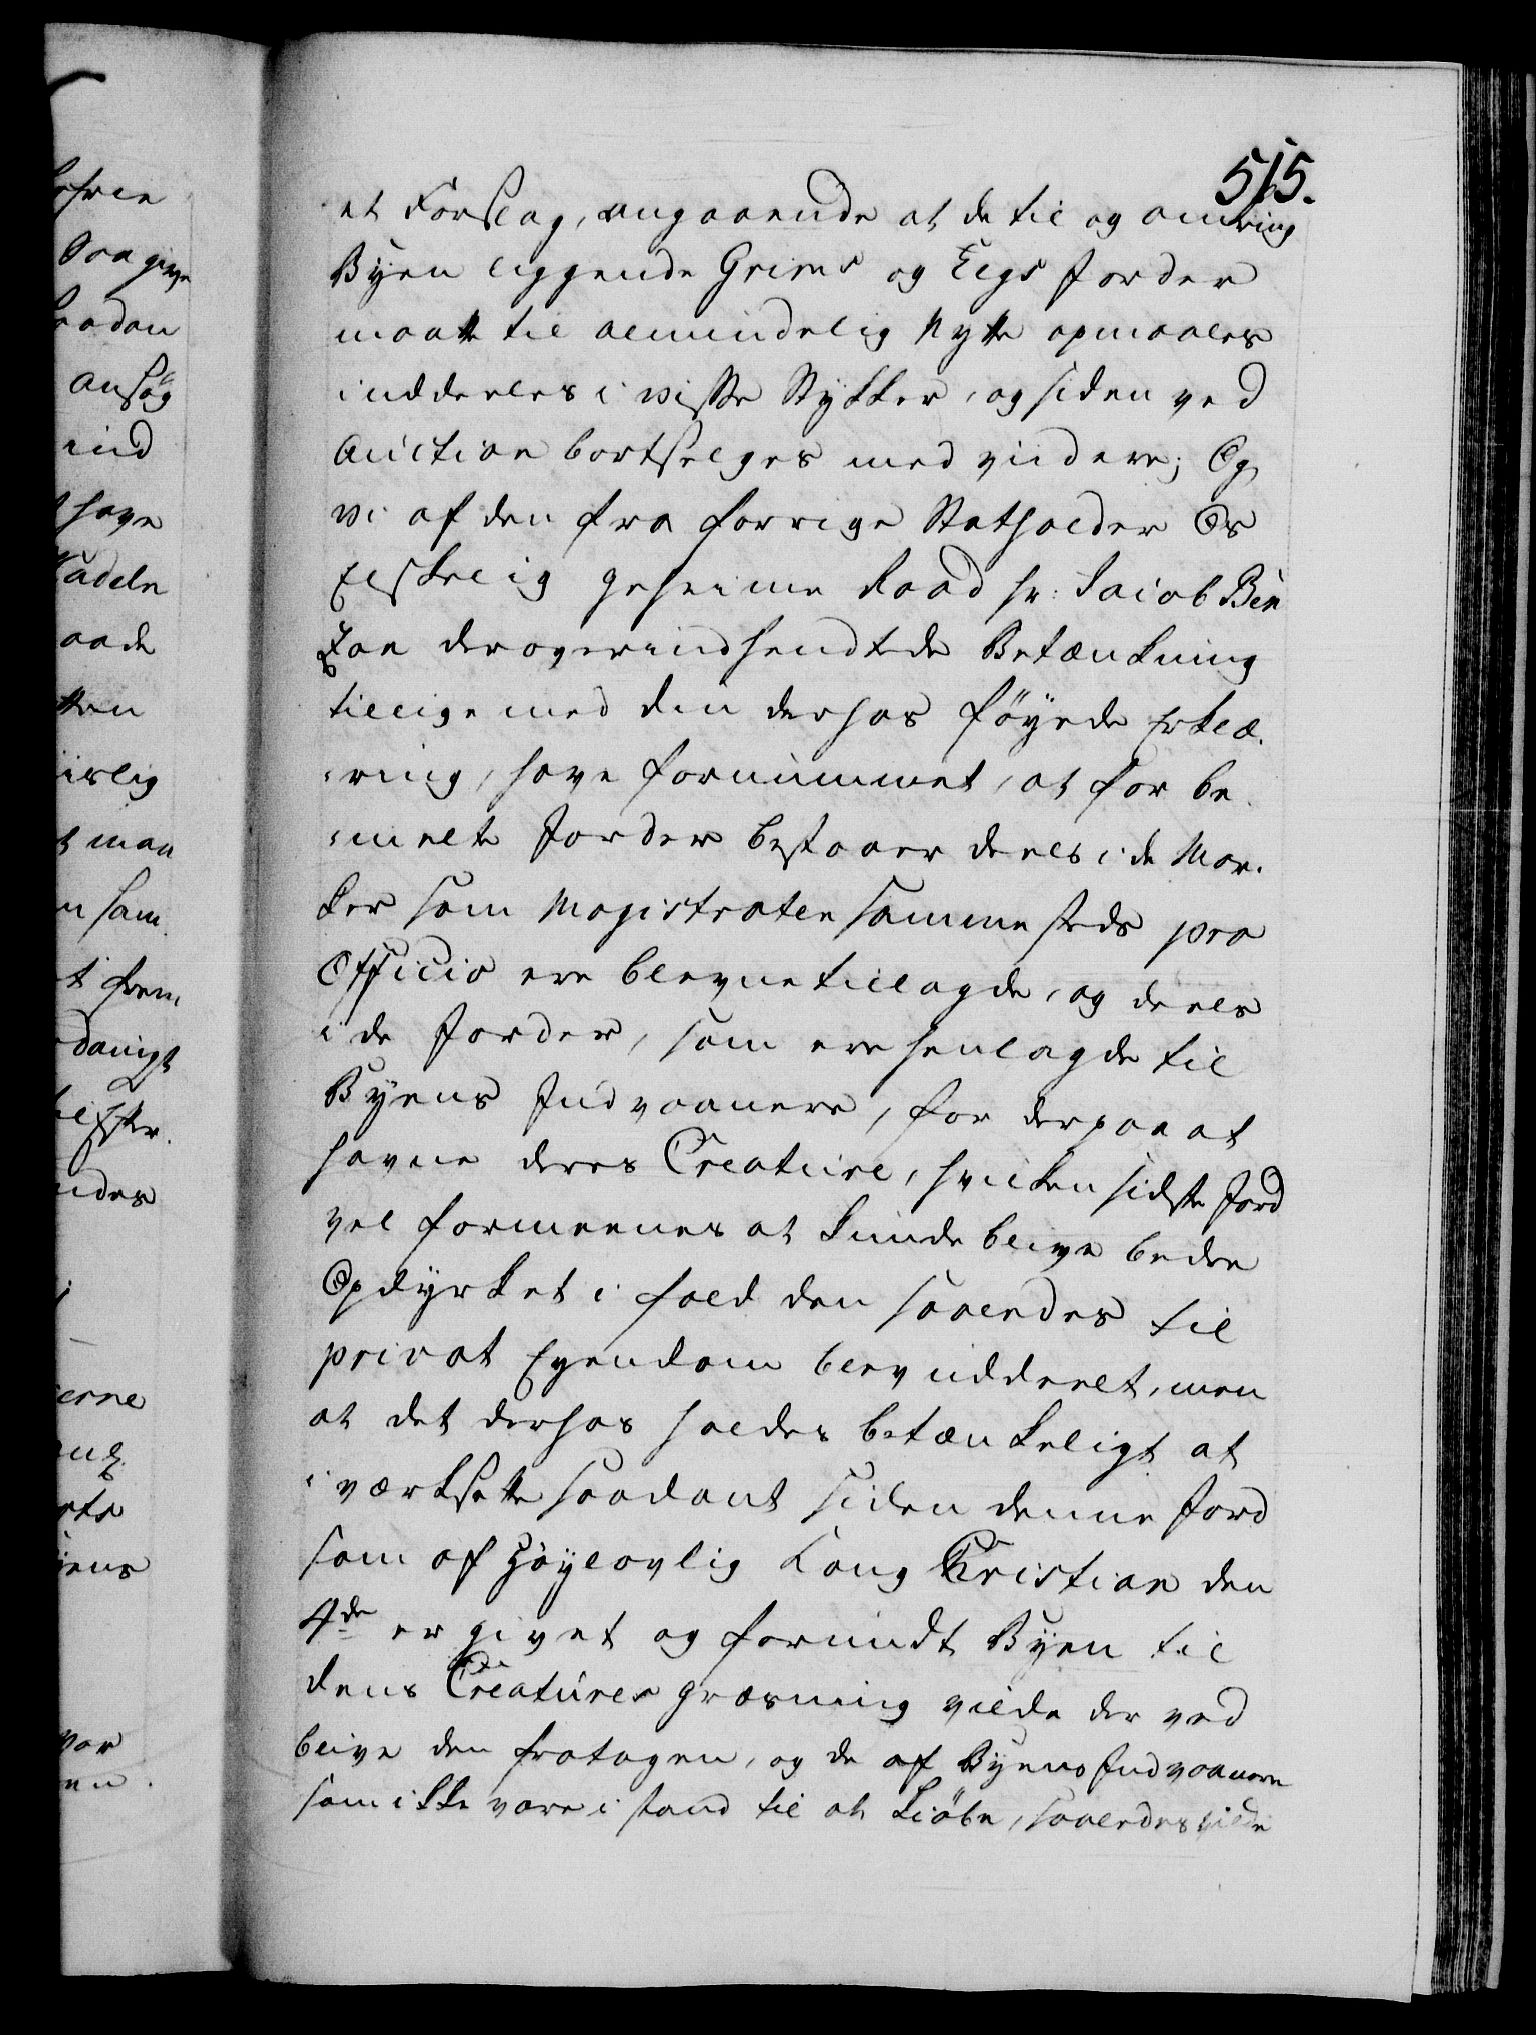 515.
et Forslag, angaaende at de til og omkring
Byen liggende Grims og Eegs Jorder
maatte til almindelig Nytte opmaales
inddeeles i visse Stykker, og siden ved
Auction bortselges med viidere; Og
vi af den fra forrige Statholder Os
Elskelig geheime Raad Hr: Jacob Ben
zon derover indsendtede Betænkning
tillige med den derhos föyede Erklæ-
-ring, have fornummet, at for be-
-melte Jorder bestaaer deels i de Mar-
ker som Magistraten sammesteds pro
Officio ere blevne tillagde, og deels
i de Jorder, som ere henlagde til
Byens Indvaanere, for derpaa at
havne deres Creature, hvilken sidste Jord
vel formeenes at kunde blive bedre
Opdyrket i fald den saaledes til
privat Eyendom blev uddeelt, men
at det derhos holdes betænkeligt at
i værksette saadant siden denne Jord
som af Höylovlig Kong Christian den
4de er givet og forundt Byen til
dens Creaturer græsning vilde der ved
blive den fratagen, og de af Byens Indvaanere
som ikke vare i stand til at kiöbe, saaledes vilde